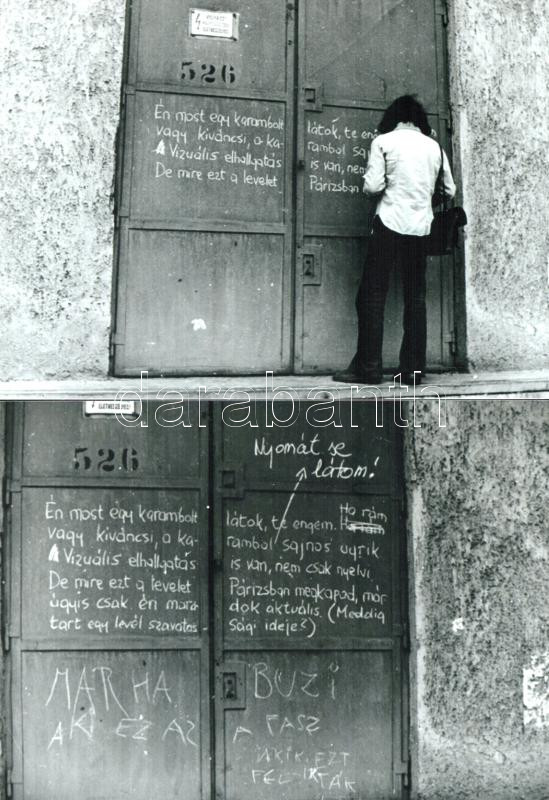 526
Én most egy karambolt
vagy kiváncsi, a ka-
A Vizuális elhallgatás
De mire ezt a levelet
látok, te
rambol saj
is van, nem
Párizsban
darabanth
526
Nyomát se
látom!
Én most egy karambolt
vagy kiváncsi, a ka-
A Vizuális elhallgatás
De mire ezt a levelet
úgyis csak én mara-
tart egy levél szavatos
látok, te engem. Ha rám
rambol sajnos ugrik
is van, nem csak nyelvi
Párizsban megkapod, már
dok aktuális. (Meddig
sági ideje?)
MARHA
AKI EZ AZ
BUZI
A FASZ
AKIK EZT
FELIRTÁK